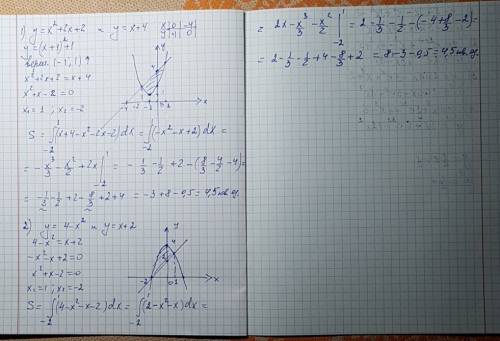 1) y = x² + 2x + 2 и y = x + 4 x | 0 | -4
y | 4 | 0
y = (x+1)² + 1
(-1; 1) ↑
x² + 2x + 2 = x + 4
x² + x - 2 = 0
x₁ = 1 ; x₂ = -2
S = ∫₋₂¹ (x+4-x²-2x-2) dx = ∫₋₂¹ (-x²-x+2) dx =
= -x³/3 - x²/2 + 2x |₋₂¹ = -1/3 - 1/2 + 2 - (8/3 - 4/2 - 4) =
= -1/3 - 1/2 + 2 - 8/3 + 2 + 4 = -3 + 8 - 0,5 = 4,5 кв. ед.
2) y = 4 - x² и y = x + 2
4 - x² = x + 2
-x² - x + 2 = 0
x² + x - 2 = 0
x₁ = 1 ; x₂ = -2
S = ∫₋₂¹ (4-x²-x-2) dx = ∫₋₂¹ (2-x²-x) dx =
= 2x - x³/3 - x²/2 |₋₂¹ = 2 - 1/3 - 1/2 - (-4 + 8/3 - 2) =
= 2 - 1/3 - 1/2 + 4 - 8/3 + 2 = 8 - 3 - 0,5 = 4,5 кв. ед.